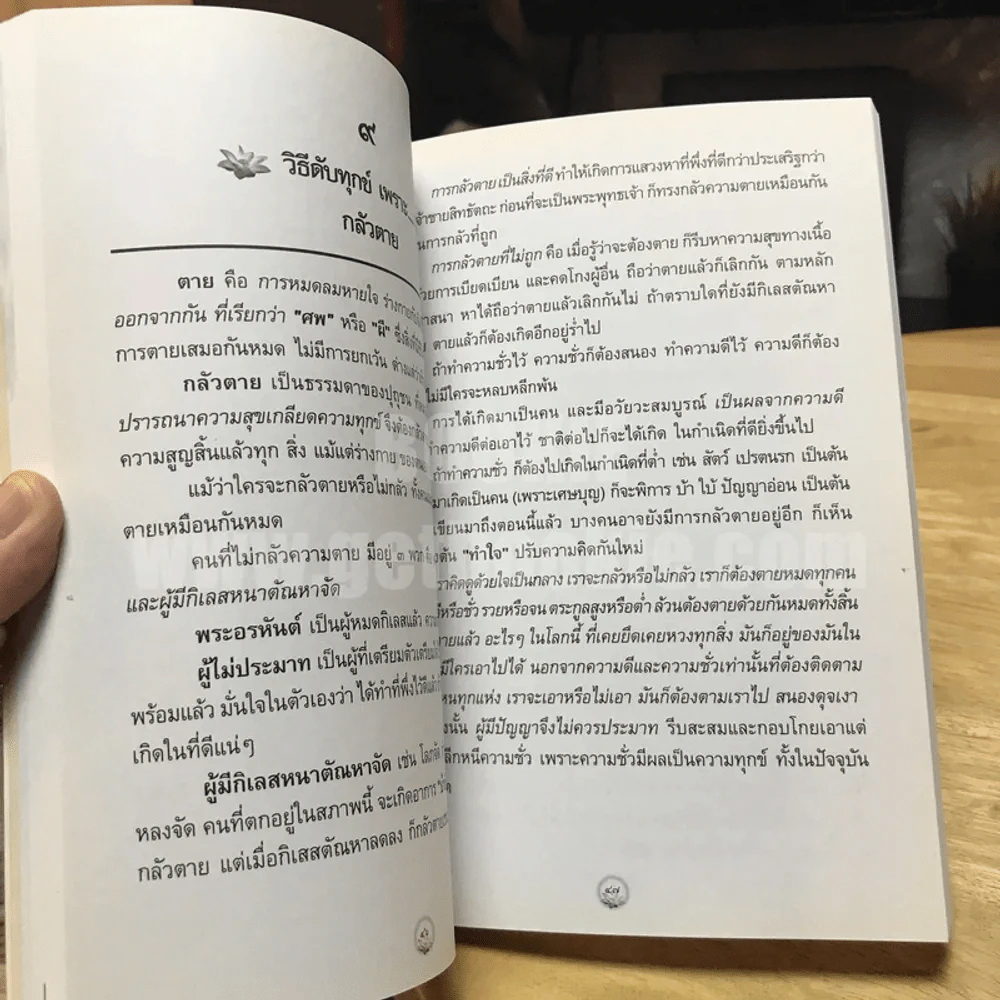 ๙
วิธีดับทุกข์ เพราะ
กลัวตาย
ตาย คือ การหมดลมหายใจ ร่างกาย
ออกจากกัน ที่เรียกว่า "ศพ" หรือ "ผี" ซึ่ง
การตายเสมอกันหมด ไม่มีการยกเว้น
กลัวตาย เป็นธรรมดาของปุถุชน
ปรารถนาความสุขเกลียดความทุกข์ จึงต้องกลัว
ความสูญสิ้นแล้วทุก สิ่ง แม้แต่ร่างกาย ของ
แม้ว่าใครจะกลัวตายหรือไม่กลัว
ตายเหมือนกันหมด
คนที่ไม่กลัวความตาย มีอยู่ ๓
และผู้มีกิเลสหนาตัณหาจัด
พระอรหันต์ เป็นผู้หมดกิเลสแล้ว
ผู้ไม่ประมาท เป็นผู้ที่เตรียมตัว
พร้อมแล้ว มั่นใจในตัวเองว่า ได้ทำที่พึ่งไว้ดี
เกิดในที่ดีแน่ๆ
ผู้มีกิเลสหนาตัณหาจัด เช่น
หลงจัด คนที่ตกอยู่ในสภาพนี้ จะเกิดอาการ
กลัวตาย แต่เมื่อกิเลสตัณหาลดลง ก็กลัวตาย
๔๖
การกลัวตาย เป็นสิ่งที่ดี ทำให้เกิดการแสวงหาที่พึ่งที่ดีกว่าประเสริฐกว่า
จ้าชายสิทธัตถะ ก่อนที่จะเป็นพระพุทธเจ้า ก็ทรงกลัวความตายเหมือนกัน
นการกลัวที่ถูก
การกลัวตายที่ไม่ถูก คือ เมื่อรู้ว่าจะต้องตาย ก็รีบหาความสุขทางเนื้อ
ด้วยการเบียดเบียน และคดโกงผู้อื่น ถือว่าตายแล้วก็เลิกกัน ตามหลัก
าสนา หาได้ถือว่าตายแล้วเลิกกันไม่ ถ้าตราบใดที่ยังมีกิเลสตัณหา
ตายแล้วก็ต้องเกิดอีกอยู่ร่ำไป
ถ้าทำความชั่วไว้ ความชั่วก็ต้องสนอง ทำความดีไว้ ความดีก็ต้อง
ไม่มีใครจะหลบหลีกพ้น
การได้เกิดมาเป็นคน และมีอวัยวะสมบูรณ์ เป็นผลจากความดี
ทำความดีต่อเอาไว้ ชาติต่อไปก็จะได้เกิด ในกำเนิดที่ดียิ่งขึ้นไป
ถ้าทำความชั่ว ก็ต้องไปเกิดในกำเนิดที่ต่ำ เช่น สัตว์ เปรตนรก เป็นต้น
มาเกิดเป็นคน (เพราะเศษบุญ) ก็จะพิการ บ้า ใบ้ ปัญญาอ่อน เป็นต้น
เขียนมาถึงตอนนี้แล้ว บางคนอาจยังมีการกลัวตายอยู่อีก ก็เห็น
ต้น "ทำใจ" ปรับความคิดกันใหม่
ราคิดดูด้วยใจเป็นกลาง เราจะกลัวหรือไม่กลัว เราก็ต้องตายหมดทุกคน
ดีหรือชั่ว รวยหรือจน ตระกูลสูงหรือต่ำ ล้วนต้องตายด้วยกันหมดทั้งสิ้น
ายแล้ว อะไรๆ ในโลกนี้ ที่เคยยึดเคยหวงทุกสิ่ง มันก็อยู่ของมันใน
มีใครเอาไปได้ นอกจากความดีและความชั่วเท่านั้นที่ต้องติดตาม
หนทุกแห่ง เราจะเอาหรือไม่เอา มันก็ต้องตามเราไป สนองดุจเงา
งนั้น ผู้มีปัญญาจึงไม่ควรประมาท รีบสะสมและกอบโกยเอาแต่
ลีกหนีความชั่ว เพราะความชั่วมีผลเป็นความทุกข์ ทั้งในปัจจุบัน
๔๗